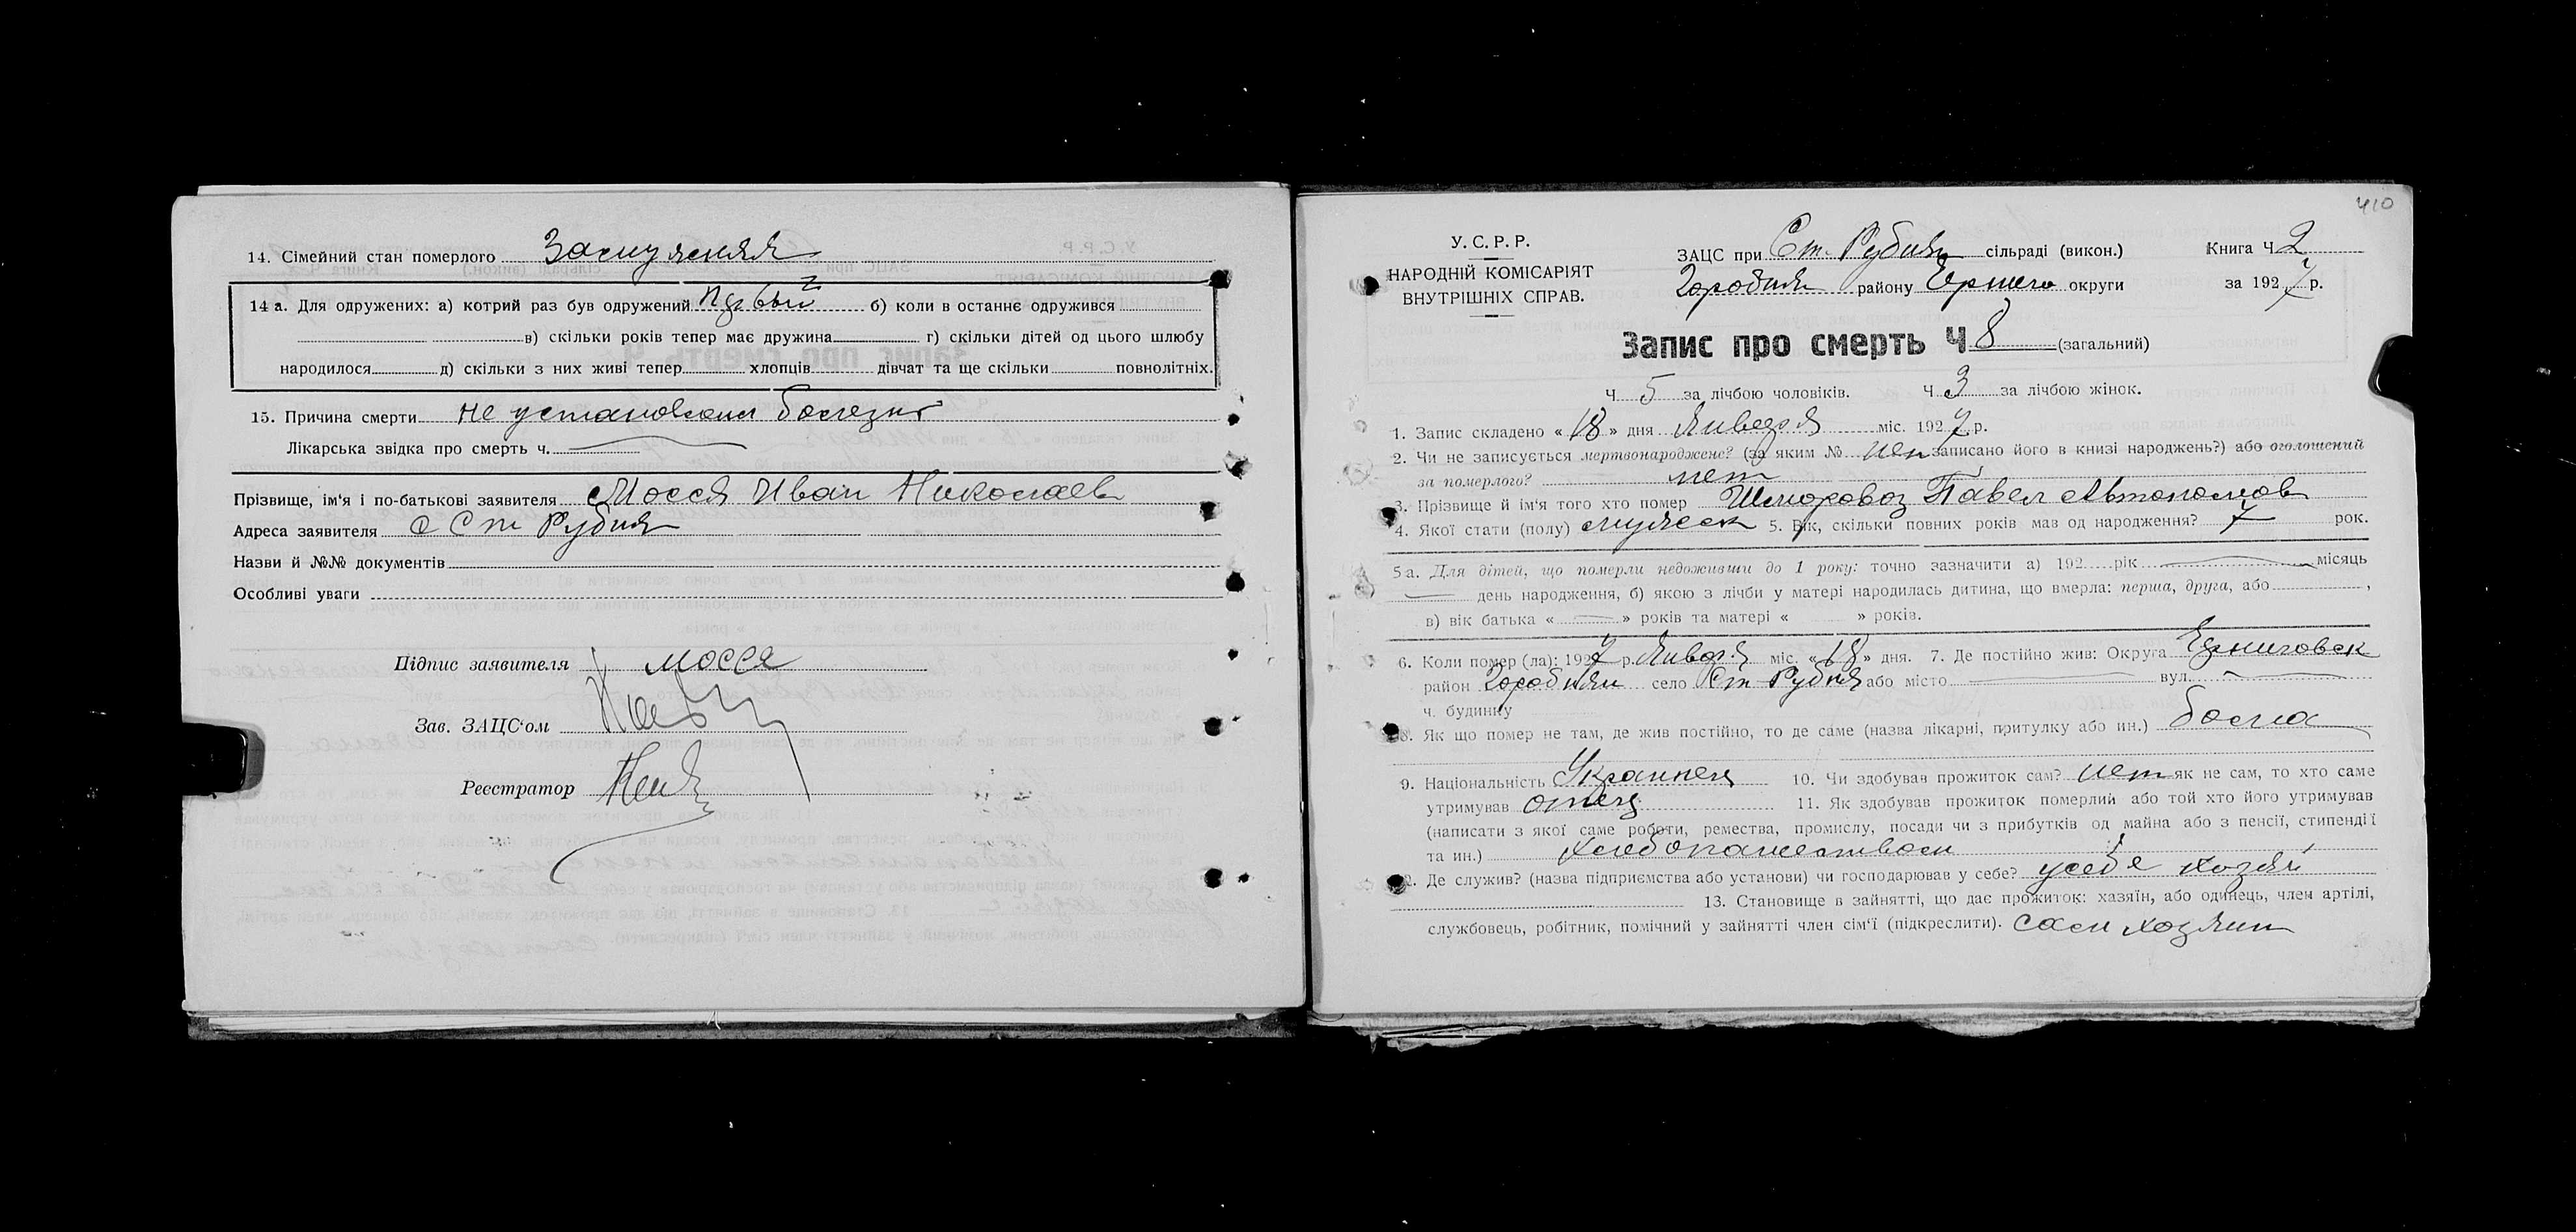 14. Сімейний стан померлого Замужняя
14 а. Для одружених: а) котрий раз був одружений первый б) коли в останнє одружився
в) скільки років тепер має дружина г) скільки дітей од цього шлюбу
народилося д) скільки з них живі тепер хлопців дівчат та ще скільки повнолітніх.
15. Причина смерти не установлена болезнь
Лікарська звідка про смерть ч.
Прізвище, ім'я і по-батькові заявителя Мосся Иван Николаев
Адреса заявителя с Ст Рубня
Назви й №№ документів
Особливі уваги
Підпис заявителя мосся
Зав. ЗАЦС'ом
Реєстратор
410
У.С.Р.Р.
НАРОДНІЙ КОМІСАРІЯТ
ВНУТРІШНІХ СПРАВ.
ЗАЦС при Ст. Рубня сільраді (викон.) Книга Ч 2
Городня району округи за 1927 р.
Запис про смерть Ч 8 (загальний)
Ч 5 за лічбою чоловіків. Ч 3 за лічбою жінок.
1. Запис складено « 18 » дня Января міс. 1927 р.
2. Чи не записується мертвонароджене? (за яким № нет записано його в книзі народжень?) або оголошений
за померлого? нет
3. Прізвище й ім'я того хто помер Шморовоз Павел Автономов
4. Якої стати (полу) мужеск 5. Вік, скільки повних років мав од народження? 7 рок.
5 а. Для дітей, що померли недоживши до 1 року: точно зазначити а) 192 рік місяць
день народження, б) якою з лічби у матері народилась дитина, що вмерла: перша, друга, або ,
в) вік батька « » років та матері « » років.
6. Коли помер (ла): 1927 р. Января міс. « 18 » дня. 7. Де постійно жив: Округа Черниговск
район Городнян село Ст Рубня або місто вул.
ч. будинку
8. Як що помер не там, де жив постійно, то де саме (назва лікарні, притулку або ин.) дома
9. Національність Украинец 10. Чи здобував прожиток сам? нет як не сам, то хто саме
утримував отец 11. Як здобував прожиток померлий або той хто його утримував
(написати з якої саме роботи, ремества, промислу, посади чи з прибутків од майна або з пенсії, стипендії
та ин.) хлебопашеством
12. Де служив? (назва підприємства або установи) чи господарював у себе? у себя
13. Становище в зайнятті, що дає прожиток: хазяїн, або одинець, член артілі,
службовець, робітник, помічний у зайнятті член сім'ї (підкреслити). сам хозяин